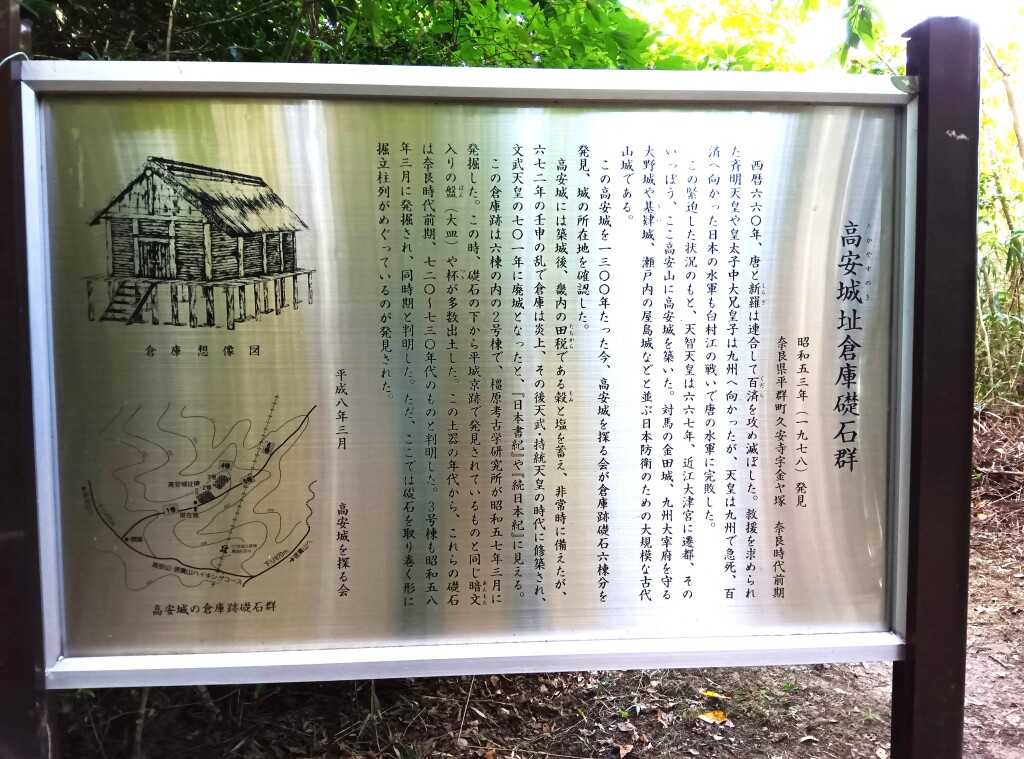 高安城址倉庫礎石群
たかやすのき
昭和五三年（一九七八）発見
奈良県平群町久安寺字金ヤ塚　奈良時代前期
西暦六六〇年、唐と新羅は連合して百済を攻め滅ぼした。救援を求められ
た斉明天皇や皇太子中大兄皇子は九州へ向かったが、天皇は九州で急死、百
済へ向かった日本の水軍も白村江の戦いで唐の水軍に完敗した。
この緊迫した状況のもと、天智天皇は六六七年、近江大津宮に遷都、その
いっぽう、ここ高安山に高安城を築いた。対馬の金田城、九州大宰府を守る
大野城や基肄城、瀬戸内の屋島城などと並ぶ日本防衛のための大規模な古代
山城である。
この高安城を一三〇〇年たった今、高安城を探る会が倉庫跡礎石六棟分を
発見、城の所在地を確認した。
高安城には築城後、畿内の田税である穀と塩を蓄え、非常時に備えたが、
六七二年の壬申の乱で倉庫は炎上、その後天武、持統天皇の時代に修築され、
文武天皇の七〇一年に廃城となったと、『日本書紀』や『続日本紀』に見える。
この倉庫跡は六棟の内の２号棟で、橿原考古学研究所が昭和五七年三月に
発掘した。この時、礎石の下から平城京跡で発見されているものと同じ暗文
入りの盤（大皿）や杯が多数出土した。この土器の年代から、これらの礎石
は奈良時代前期、七二〇～七三〇年代のものと判明した。３号棟も昭和五八
年三月に発掘され、同時期と判明した。ただ、ここでは礎石を取り巻く形に
掘立柱列がめぐっているのが発見された。
平成八年三月　高安城を探る会
倉庫想像図
4棟
3棟
2棟
高安城址碑
1棟
現在地
高安山・信貴山ハイキングコース
高安城の倉庫跡礎石群